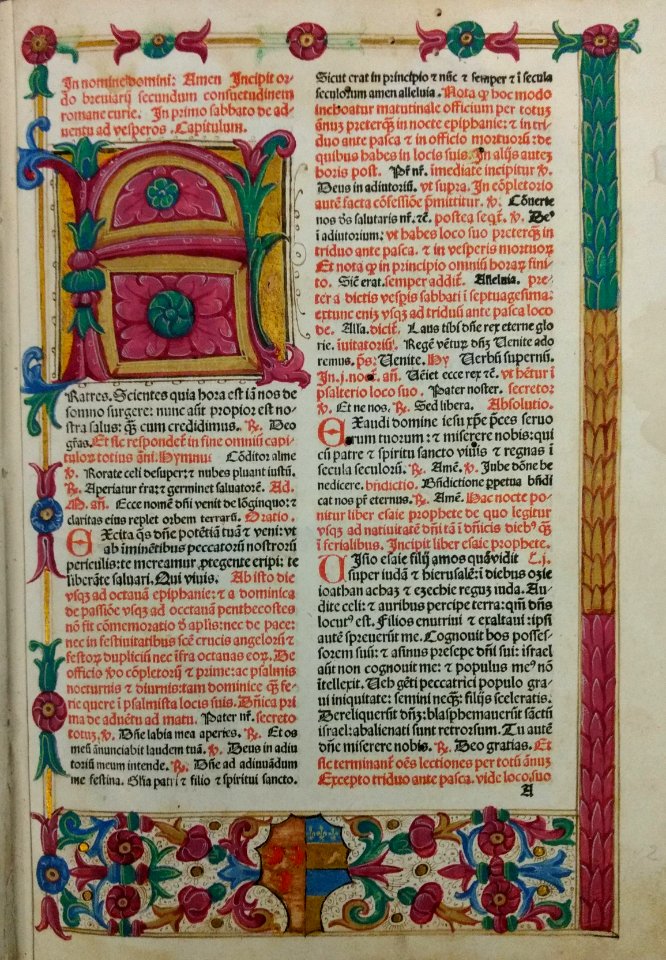 In nomine domini: Amen Incipit or-
do breviarij secundum consuetudinem
romane curie. In primo sabbato de ad-
uentu ad vesperos. Capitulum.
FRatres. Scientes quia hora est iā nos de
somno surgere: nunc aūt propior est no-
stra salus: q̄ȝ cum credidimus. ℟. Deo
grās. Et sic respondet̄ in fine omniū capi-
tuloꝝ totius āni. Hymnus Cōditor alme
℣. Rorate celi desuper: ⁊ nubes pluant iustū.
℟. Aperiatur t̄ra: ⁊ germinet saluatorē. Ad
M. an̄. Ecce nomē dn̄i venit de lōginquo: ⁊
claritas eius replet orbem terrarū. Oratio.
EXcita q̄s dn̄e potētiā tuā ⁊ veni: vt
ab īminētibus peccatorū nostrorū
periculis: te mereamur ꝓtegente eripi: te
liberāte saluari. Qui viuis. Ab isto die
vsqȝ ad octauā epiphanie: ⁊ a dominica
de passiōe vsqȝ ad occtauā penthecostes
nō fit cōmemoratio d̄ aplis: nec de pace:
nec in festiuitatibus scē crucis angeloꝝ ⁊
festoꝝ dupliciū nec īfra octauas eoꝝ. De
officio vo cōpletorij ⁊ prime: ac psalmis
nocturnis ⁊ diurnis: tam dominice q̄ȝ fe-
rie quere ī psalmista locis suis. Dn̄ica pri
ma de aduētu ad matu. Pater nr̄. secreto
totuȝ. ℣. Dn̄e labia mea aperies. ℟. Et os
meū ānunciabit laudem tuā. ℣. Deus in adiu
toriū meum intende. ℟. Dn̄e ad adiuuādum
me festina. Glīa patri ⁊ filio ⁊ spiritui sancto.
Sicut erat in principio ⁊ nūc ⁊ semper ⁊ ī secula
seculorum amen alleluia. Nota qꝫ hoc modo
inchoatur matutinale officium per totuȝ
ānuȝ preterqȝ in nocte epiphanie: ⁊ in tri-
duo ante pasca ⁊ in officio mortuoꝝ: de
quibus habes in locis suis. In alijs auteȝ
horis post. Pr̄ nr̄. imediate incipitur ℣.
Deus in adiutoriū. vt supra. In cōpletorio
autē facta cōfessiōe p̄mittitur. ℣. Cōuerte
nos d̄s salutaris nr̄. ⁊c̄. postea seqt̄. ℣. De⁹
ī adiutorium: vt habes loco suo preterqȝ in
triduo ante pasca. ⁊ in vesperis mortuoꝝ
Et nota qꝫ in principio omniū horaꝝ fini-
to. Sic̄ erat. semper addit̄. Alleluia. pre-
ter a dictis vesp̄is sabbati ī septuagesima:
extunc enīȝ vsqȝ ad triduū ante pasca loco
de. Alla. dicit̄. Laus tibi dn̄e rex eterne glo
rie. īuitatoriū. Regē vētuꝝ dn̄ȝ Uenite ado
remus. ps̄: Uenite. Hy Uerbū supernū.
In. j. noct̄. an̄. Uēiet ecce rex ⁊c̄. vt hētur ī
psalterio loco suo. Pater noster. secretoꝝ
℣. Et ne nos. ℟. Sed libera. Absolutio.
EXaudi domine iesu xp̄e p̄ces seruo
rum tuorum: ⁊ miserere nobis: qui
cū patre ⁊ spiritu sancto viuis ⁊ regnas ī
secula seculorū. ℟. Amē. ℣. Jube dōne be
nedicere. bn̄dictio. Bn̄dictione ꝑpetua bn̄di
cat nos pr̄ eternus. ℟. Amē. Hac nocte po-
nitur liber esaie prophete de quo legitur
vsqȝ ad natiuitatē dn̄i tā ī dn̄icis dieb⁹ q̄ȝ
ī ferialibus. Incipit liber esaie prophete.
UIsio esaie filij amos quāvidit L. j.
super iudā ⁊ hierusalē: ī diebus ozie
ioathan achaȝ ⁊ eȝechie reguȝ iuda. Au-
dite celi: ⁊ auribus percipe terra: qm̄ dn̄s
locut⁹ est. Filios enutriui ⁊ exaltaui: ip̄i
autē spreuerūt me. Cognouit bos posses-
sorem suū: ⁊ asinus presepe dn̄i sui: israel
aūt non cognouit me: ⁊ populus me⁹ nō
ītellexit. Ueh gēti peccatrici populo gra-
ui iniquitate: semini neqȝ: filijs sceleratis.
Dereliquerūt dn̄ȝ: blasphemauerūt sāctū
israel: abalienati sunt retrorsum. Tu autē
dn̄e miserere nobis. ℟. Deo gratias. Et
sic terminant̄ oēs lectiones per totū ānuȝ
Excepto triduo ante pasca. vide loco suo
A